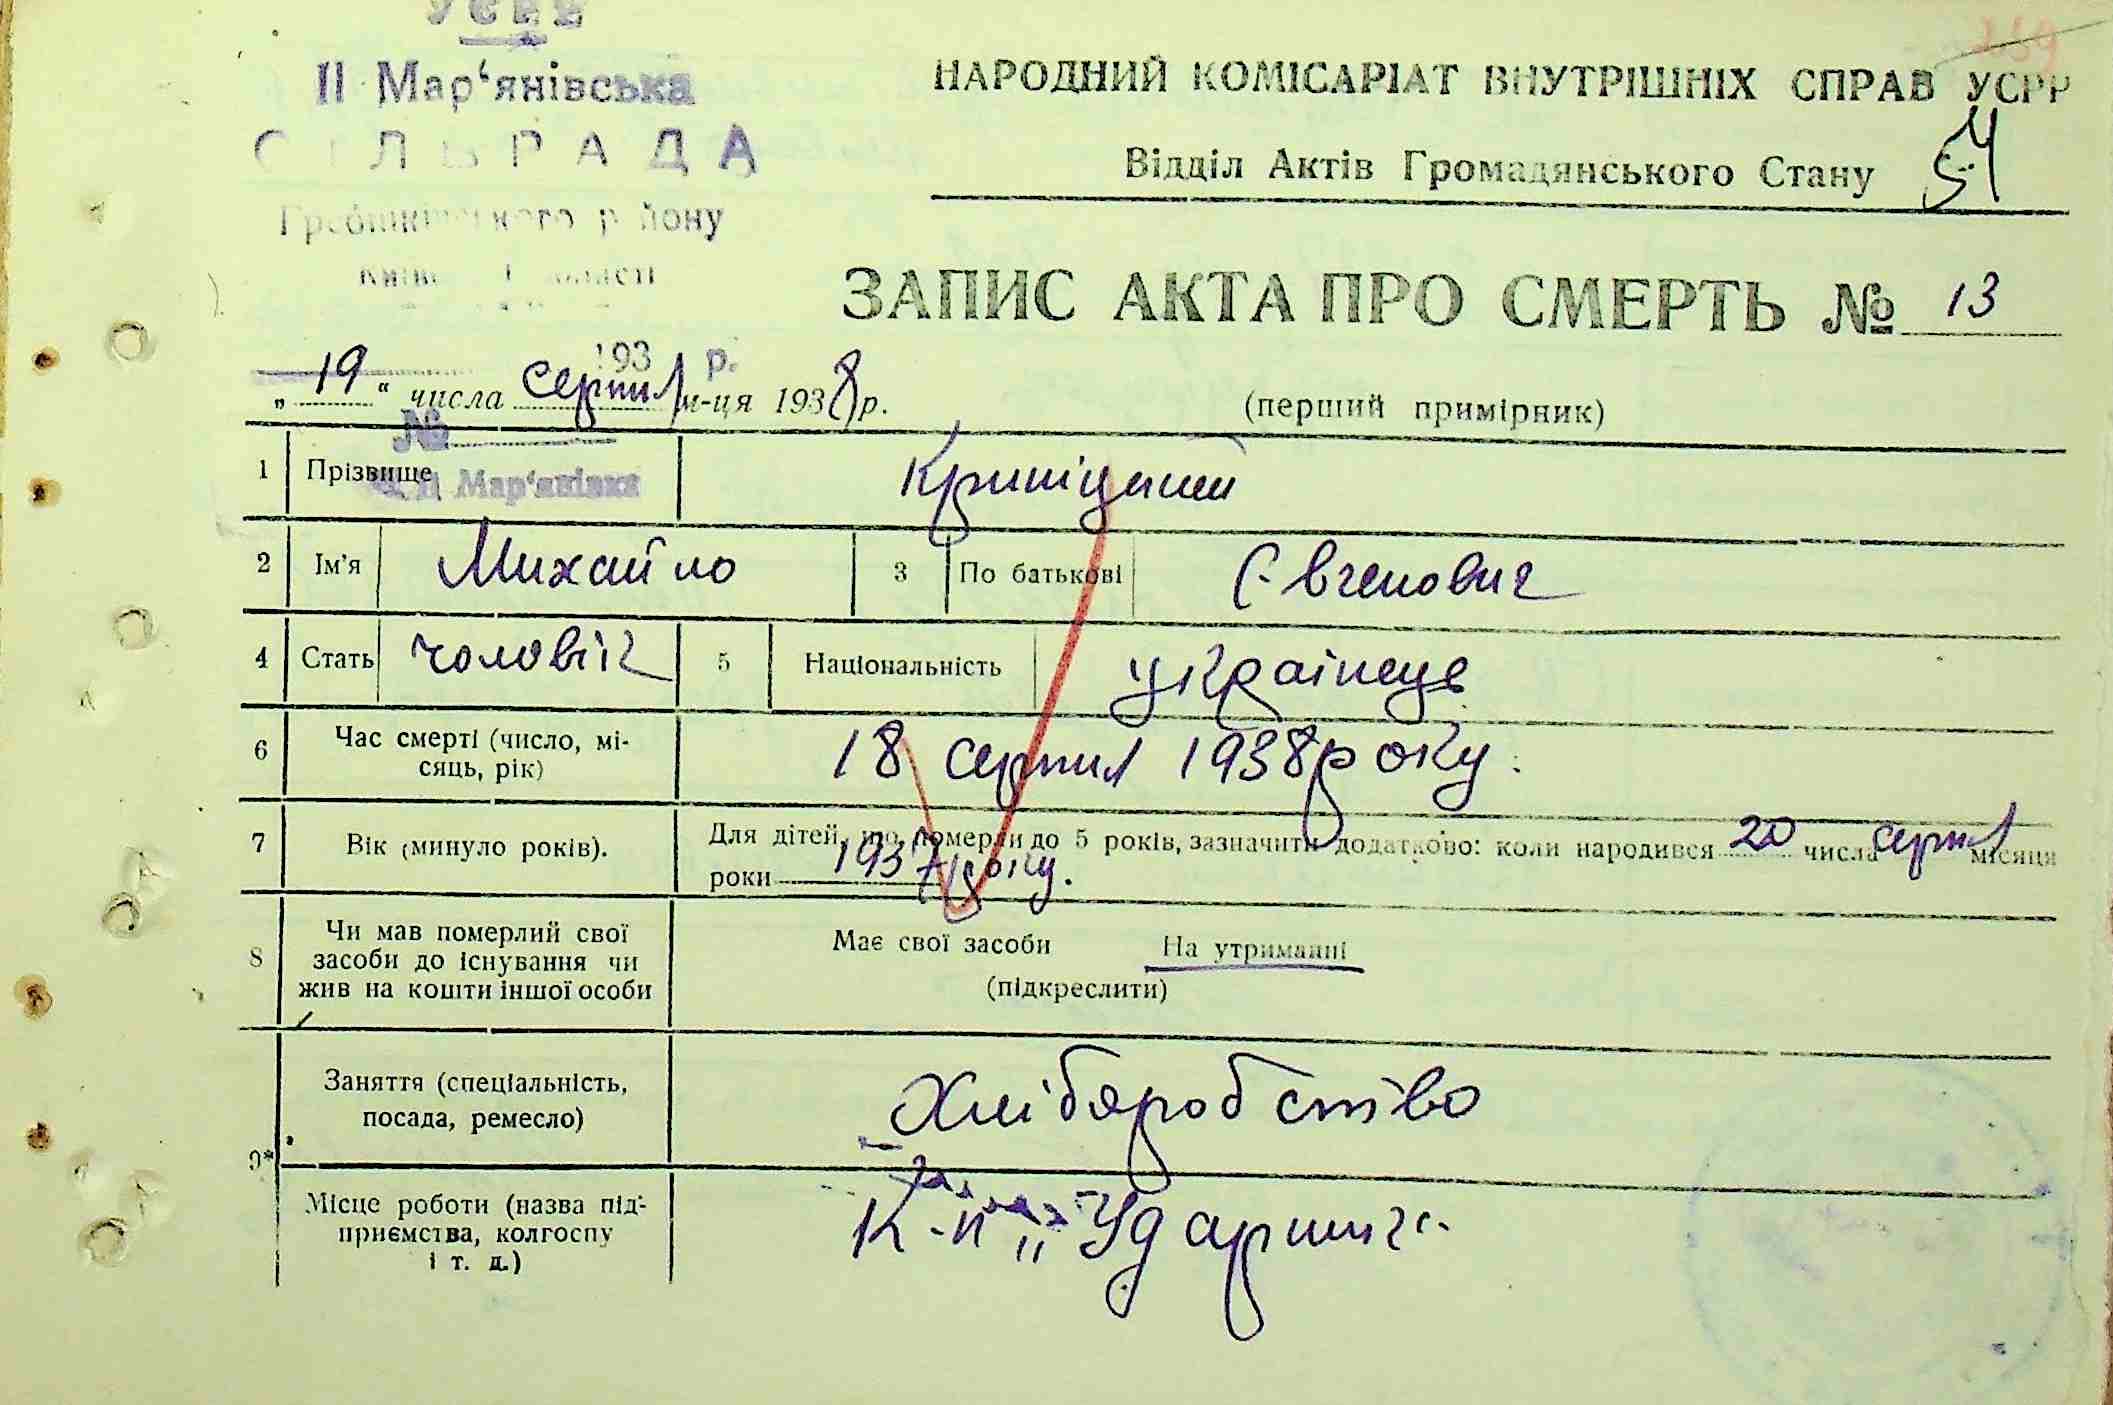 УСРР
II Мар‘янівська
СІЛЬРАДА
Гребінківського району
Київ області
НАРОДНИЙ КОМІСАРІАТ ВНУТРІШНІХ СПРАВ УСРР
Відділ Актів Громадянського Стану 54
ЗАПИС АКТА ПРО СМЕРТЬ № 13
193 р.
„19“ числа серпня м-ця 1938 р.
(перший примірник)
№
1 Прізвище Криніцький
II Мар‘янівка
2 Ім’я Михайло 3 По батькові Євгенович
4 Стать чоловік 5 Національність українець
6 Час смерті (число, мі-
сяць, рік)
18 серпня 1938 року.
7 Вік (минуло років).
Для дітей, що померли до 5 років, зазначити додатково: коли народився 20 числа серпня місяця
роки 1937 року.
8 Чи мав померлий свої
засоби до існування чи
жив на кошти іншої особи
Має свої засоби На утриманні
(підкреслити)
9* Заняття (спеціальність,
посада, ремесло)
Хліборобство
Місце роботи (назва під-
приємства, колгоспу
і т. д.)
К-п „Ударник